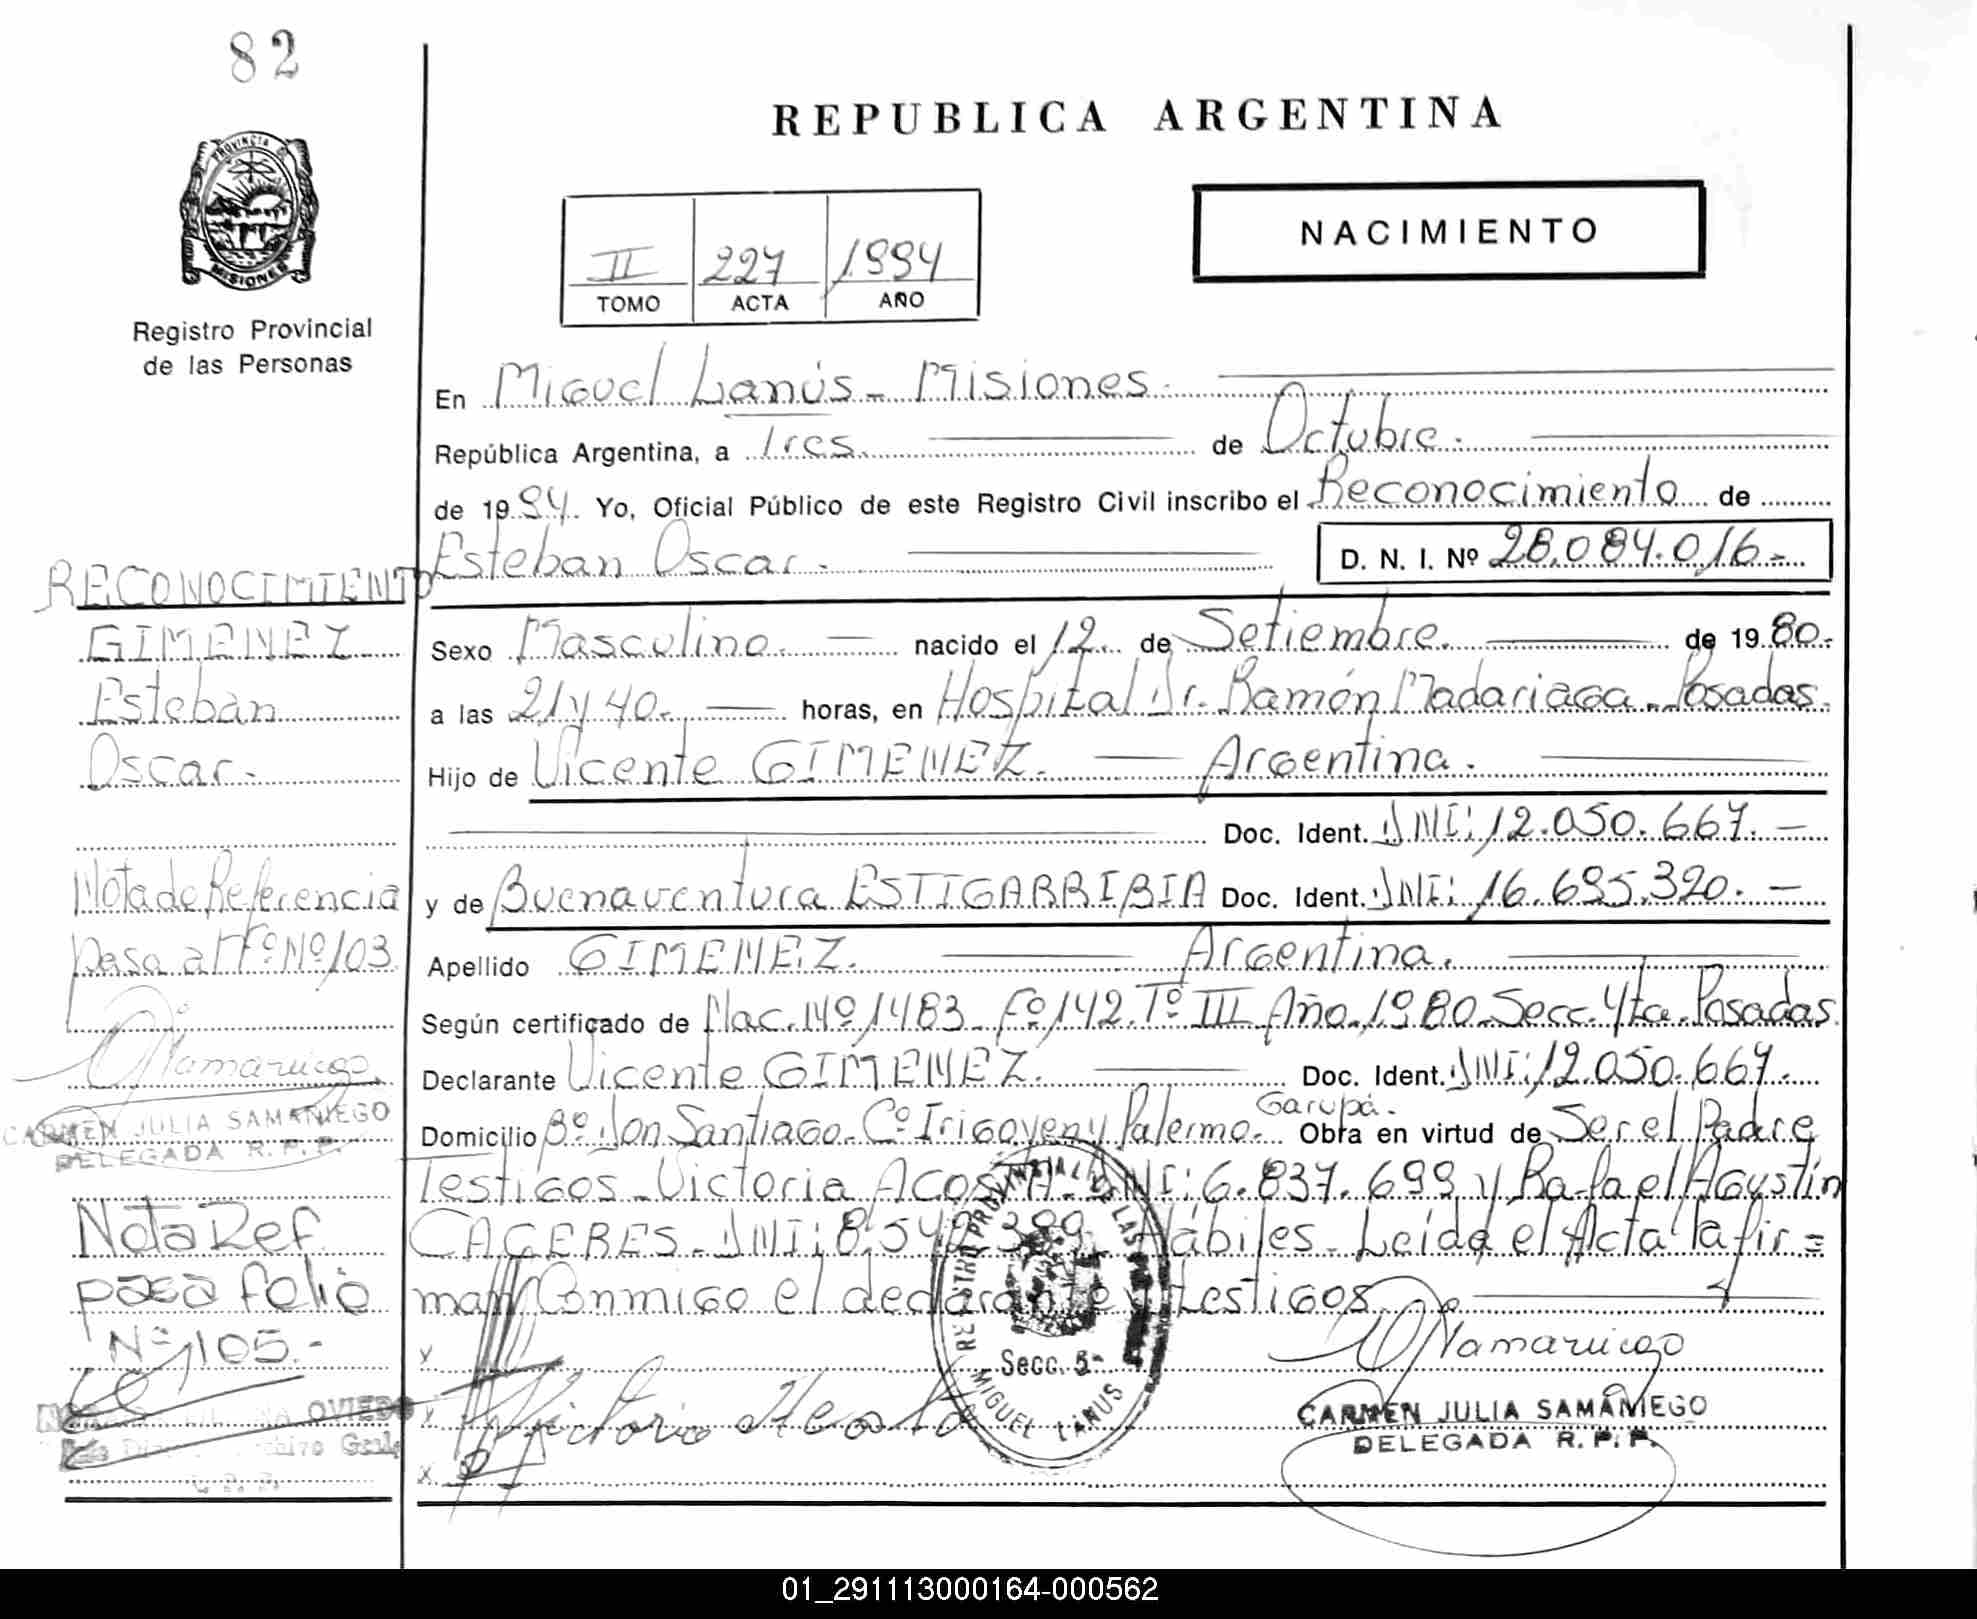 82
PROVINCIA DE
MISIONES
Registro Provincial
de las Personas
REPUBLICA ARGENTINA
NACIMIENTO
II 227 1994
TOMO ACTA AÑO
En Miguel Lanús - Misiones.
República Argentina, a Tres. de Octubre.
de 1994. Yo, Oficial Público de este Registro Civil inscribo el Reconocimiento de
Esteban Oscar. D. N. I. Nº 28.084.016.-
Sexo Masculino. nacido el 12 de Setiembre. de 1980.-
a las 21 y 40. horas, en Hospital Dr. Ramón Madariaga - Posadas.
Hijo de Vicente GIMENEZ. Argentina.
Doc. Ident. DNI: 12.050.667. -
y de Buenaventura ESTIGARRIBIA Doc. Ident. DNI: 16.695.320. -
Apellido GIMENEZ. Argentina.
Según certificado de Nac. Nº 1483 Fº 142. Tº III Año 1980. Secc. 4ta. Posadas.
Declarante Vicente GIMENEZ. Doc. Ident. DNI: 12.050.667.
Domicilio Bº Don Santiago. Cº Irigoyen y Palermo. Garupá. Obra en virtud de Ser el Padre
Testigos - Victoria ACOSTA. DNI: 6.837.699 y Rafael Agustín
CACERES. DNI: 8.549.399. Hábiles. Leída el Acta la fir=
man Conmigo el declarante y testigos.
RECONOCIMIENTO
GIMENEZ
Esteban
Oscar.-
Nota de Referencia
pasa al Fº Nº 103
CARMEN JULIA SAMANIEGO
DELEGADA R. P. P.
Nota Ref
pasa folio
Nº 105.-
OVIEDO
REGISTRO PROVINCIAL DE LAS
Secc. 5ª
MIGUEL LANUS
CARMEN JULIA SAMANIEGO
DELEGADA R. P. P.
01_291113000164-000562